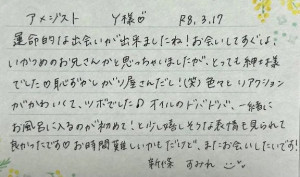 アメジスト Y様♡ R8.3.17
運命的な出会いが出来ましたね!お会いしてすぐは、
いかつめのお兄さんかと思っちゃいましたが、とっても紳士様
でした♡恥ずかしがり屋さんだし!(笑)色々とリアクション
がかわいくて、ツボでした♪オイルのドバドバで、一緒に
お風呂に入るのが初めて!と少し嬉しそうな表情も見られて
良かったです♡お時間難しいかもだけど、またお会いしたいです!
新條 すみれ